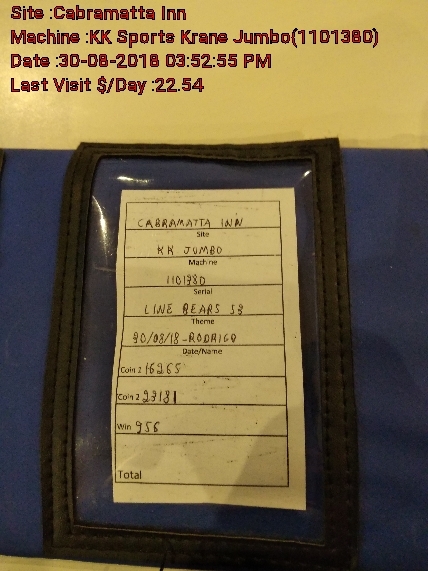 Site :Cabramatta Inn
Machine :KK Sports Krane Jumbo(110138D)
Date :30-08-2018 03:52:55 PM
Last Visit $/Day :22.54
CABRAMATTA INN
Site
KK JUMBO
Machine
110138D
Serial
LINE BEARS S3
Theme
30/08/18-RODRIGO
Date/Name
Coin 2 16265
Coin 2 23181
Win 956
Total